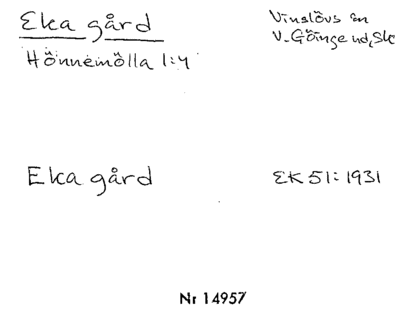 Eka gård
Vinslövs sn
V. Göinge hd, Sk
Hönnemölla 1:4
Eka gård
EK 51: 1931
Nr 14957